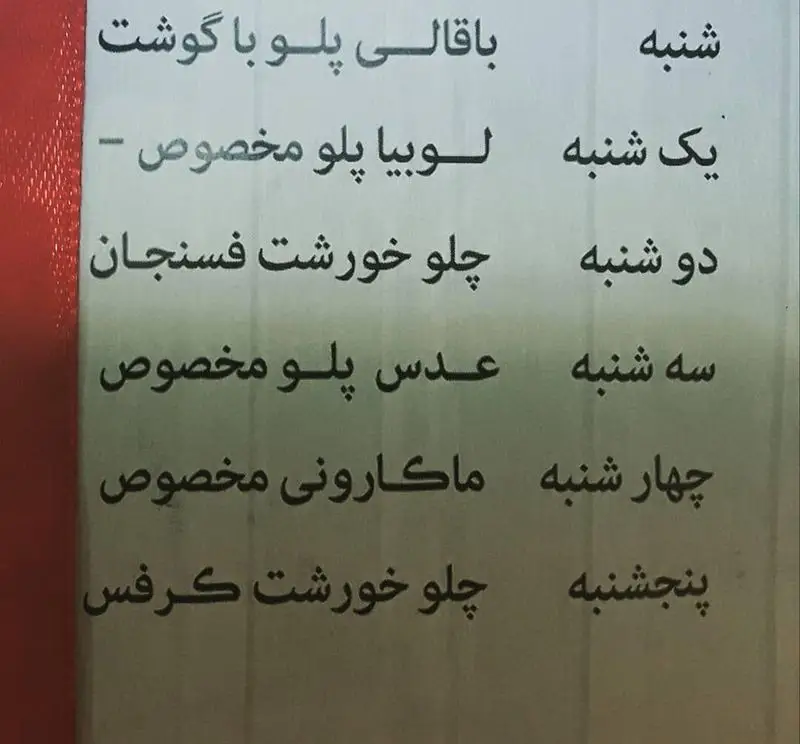 شنبه باقالی پلو با گوشت
یک شنبه لوبیا پلو مخصوص –
دو شنبه چلو خورشت فسنجان
سه شنبه عدس پلو مخصوص
چهار شنبه ماکارونی مخصوص
پنجشنبه چلو خورشت کرفس